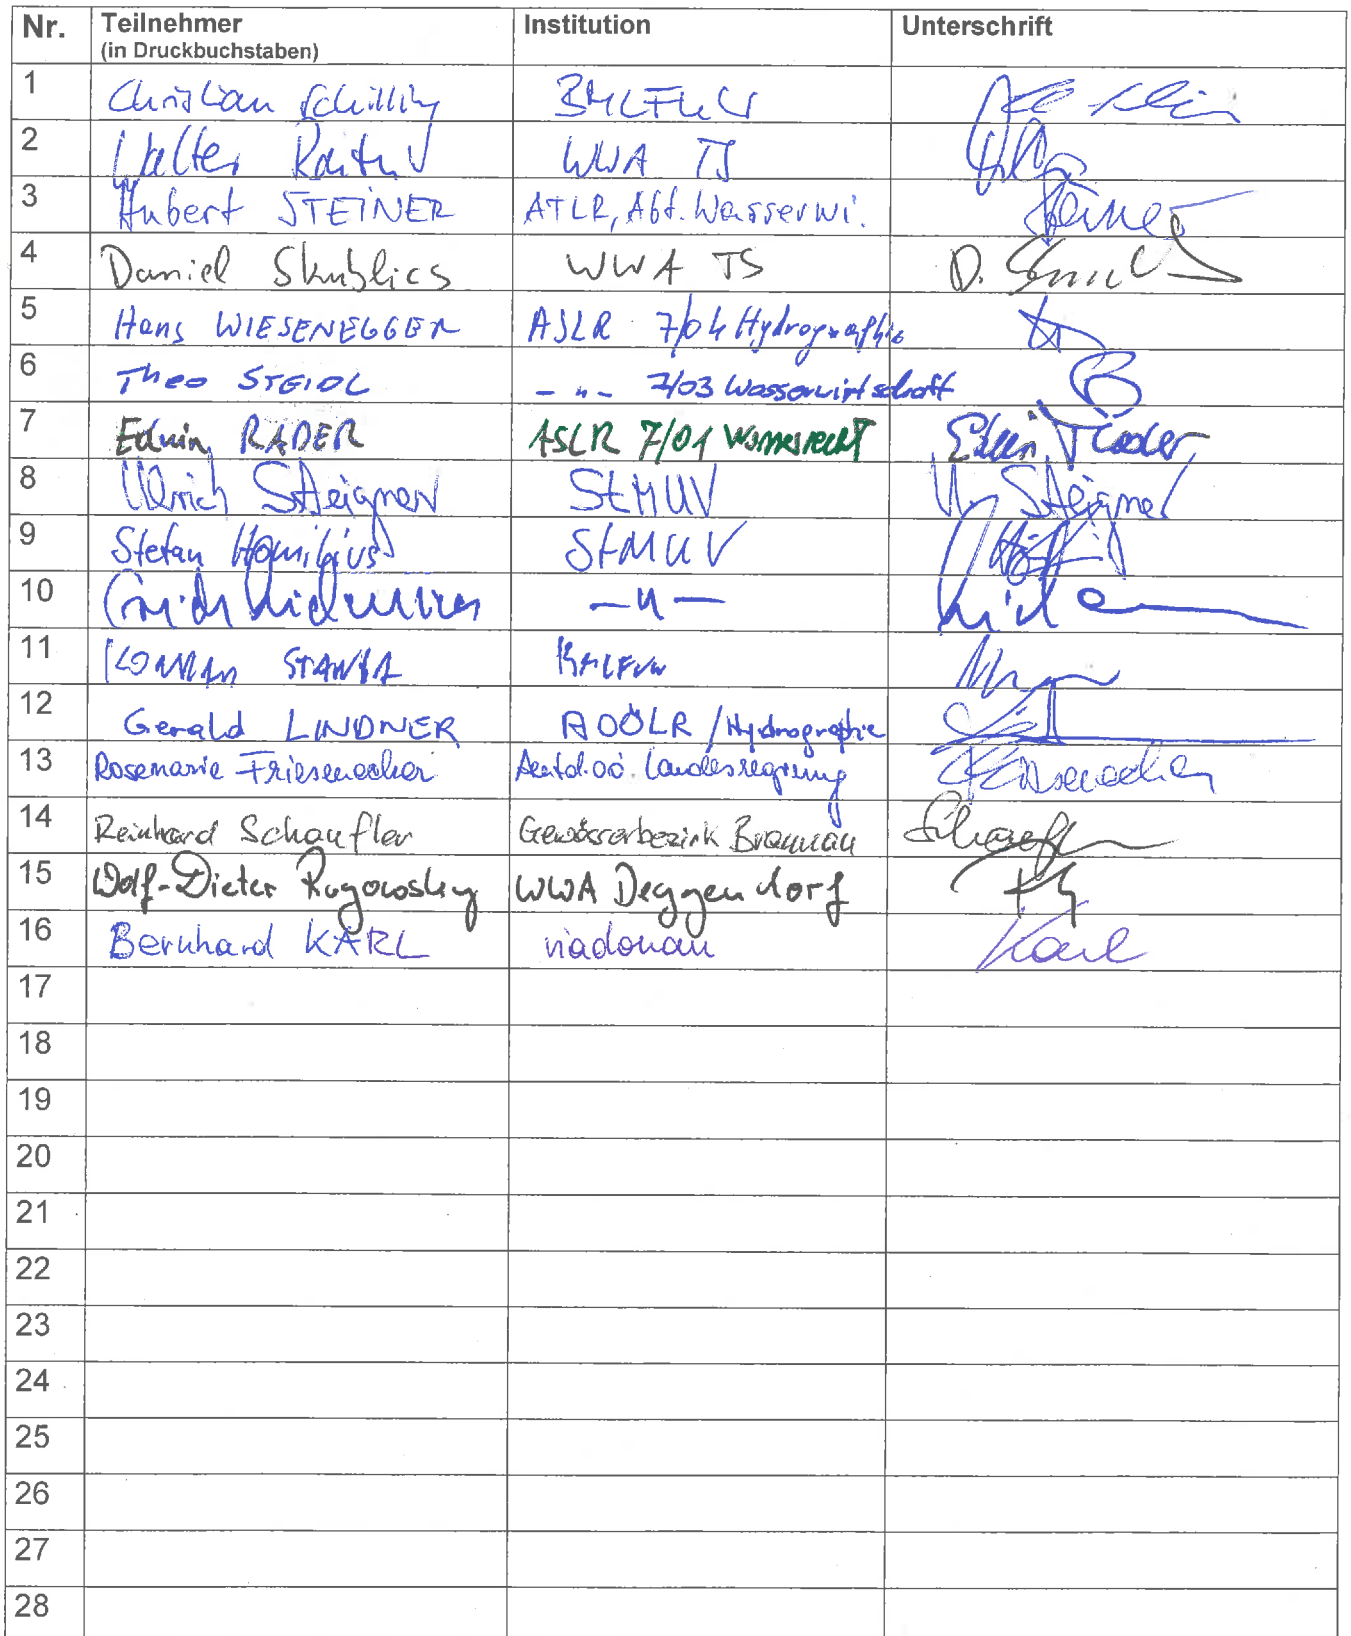 Nr. Teilnehmer Institution Unterschrift
(in Druckbuchstaben)
1 Christian Schilling BMLFUW
2 Walter WWA TS
3 Hubert STEINER ATLR, Abt. Wasserwi. Steiner
4 Daniel Skublics WWA TS D.
5 Hans WIESENEGGER ASLR 7/04 Hydrographie
6 Theo STEIDL - " - 7/03 Wasserwirtschaft
7 Edwin RADER ASLR 7/01 Wasserrecht Edwin Rader
8 Ulrich Steigner StMUV U. Steigner
9 Stefan Homilius StMUV
10 - " -
11 Roman BMLFUW
12 Gerald LINDNER AOÖLR / Hydrographie
13 Rosemarie Friesenecker Amt d. oö. Landesregierung Friesenecker
14 Reinhard Schaufler Gewässerbezirk Braunau Schaufler
15 Wolf-Dieter Rogowsky WWA Deggendorf
16 Bernhard KARL viadonau Karl
17
18
19
20
21
22
23
24
25
26
27
28